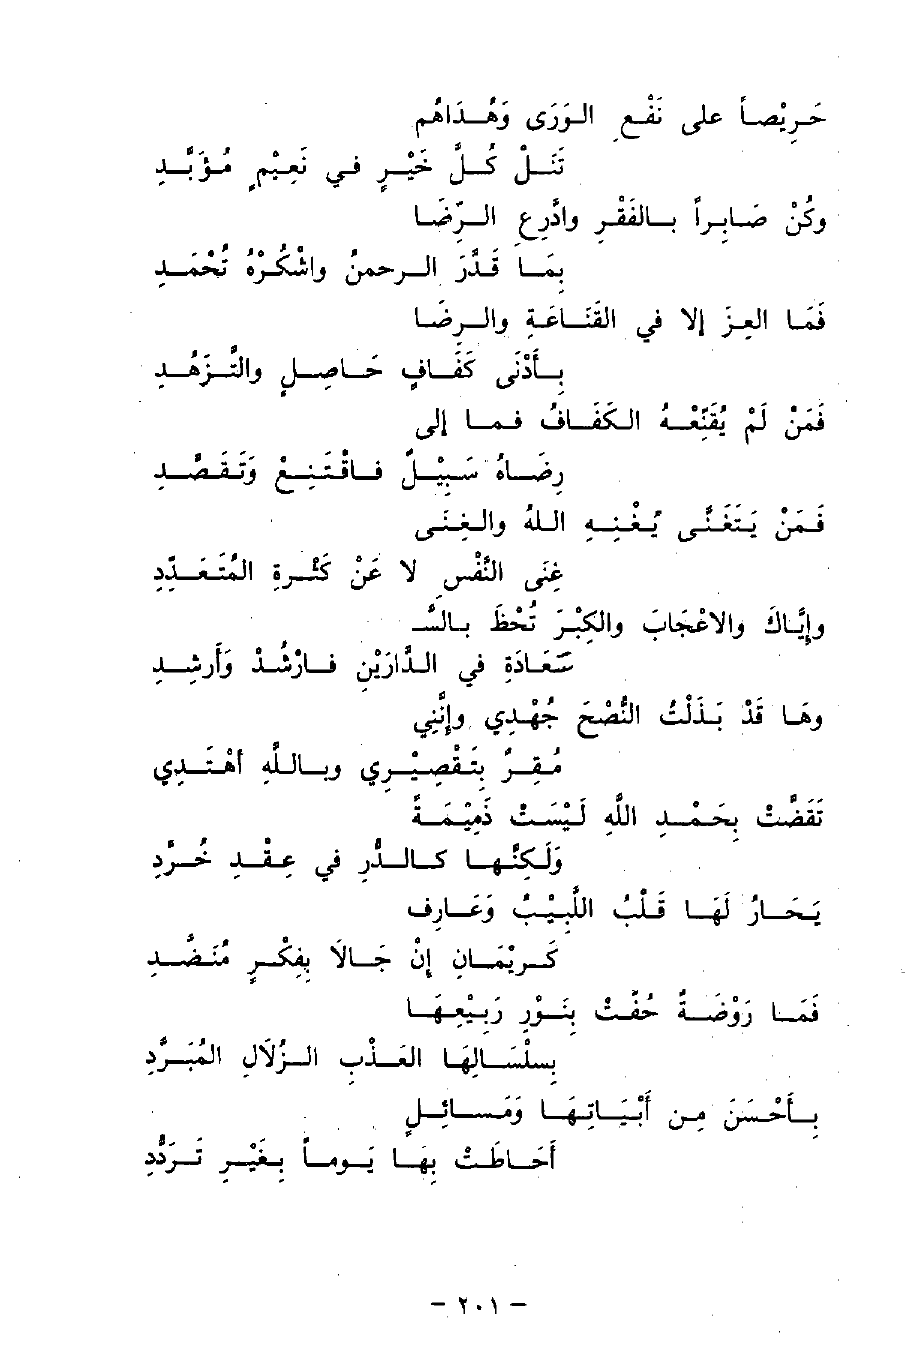 حَرِيْصاً على نَفْعِ الوَرَى وَهُدَاهُم
تَنَلْ كُلَّ خَيْرٍ في نَعِيْمٍ مُؤَبَّدِ
وكُنْ صَابِراً بالفَقْرِ وادَّرِعِ الرِّضَا
بِمَا قَدَّرَ الرحمنُ واشْكُرْهُ تُحْمَدِ
فَمَا العِزُ إلا في القَنَاعَةِ والرِضَا
بأَدْنَى كَفَافٍ حَاصِلٍ والتَّزَهُّدِ
فَمَنْ لَمْ يُقَنِّعْهُ الكَفَافُ فما إلى
رِضَاهُ سَبِيْلٌ فاقْتَنِعْ وَتَقَصَّدِ
فَمَنْ يَتَغَنَّى يُغْنِهِ اللهُ والغِنَى
غِنَى النَّفْسِ لا عَنْ كَثْرةِ المُتَعَدِّدِ
وإيَّاكَ والاعْجَابَ والكِبْرَ تُحْظَ بالسَّـ
ـعَادَةِ في الدَّارَيْنِ فارْشُدْ وَأَرشِدِ
وهَا قَدْ بَذَلْتُ النُّصْحَ جُهْدِي وإنَّنِي
مُقِرٌّ بِتَقْصِيْرِي وباللَّهِ أهْتَدِي
تَقَضَّتْ بِحَمْدِ اللَّهِ لَيْسَتْ ذَمِيْمَةً
وَلَكِنَّها كالدُّرِ في عِقْدِ خُرَّدِ
يَحَارُ لَهَا قَلْبُ اللَّبِيْبُ وَعَارِف
كَرِيْمَانِ إنْ جَالاَ بِفِكْرٍ مُنَضَّدِ
فَمَا رَوْضَةٌ حُفَّتْ بِنَوْرِ رَبِيْعِهَا
بِسِلْسَالِهَا العَذْبِ الزُلاَلِ المُبَرَّدِ
بأَحْسَنَ مِن أَبْيَاتِهَا وَمَسائِلٍ
أَحَاطَتْ بِهَا يَوماً بِغَيْرِ تَرَدُّدِ
- ٢٠١ -